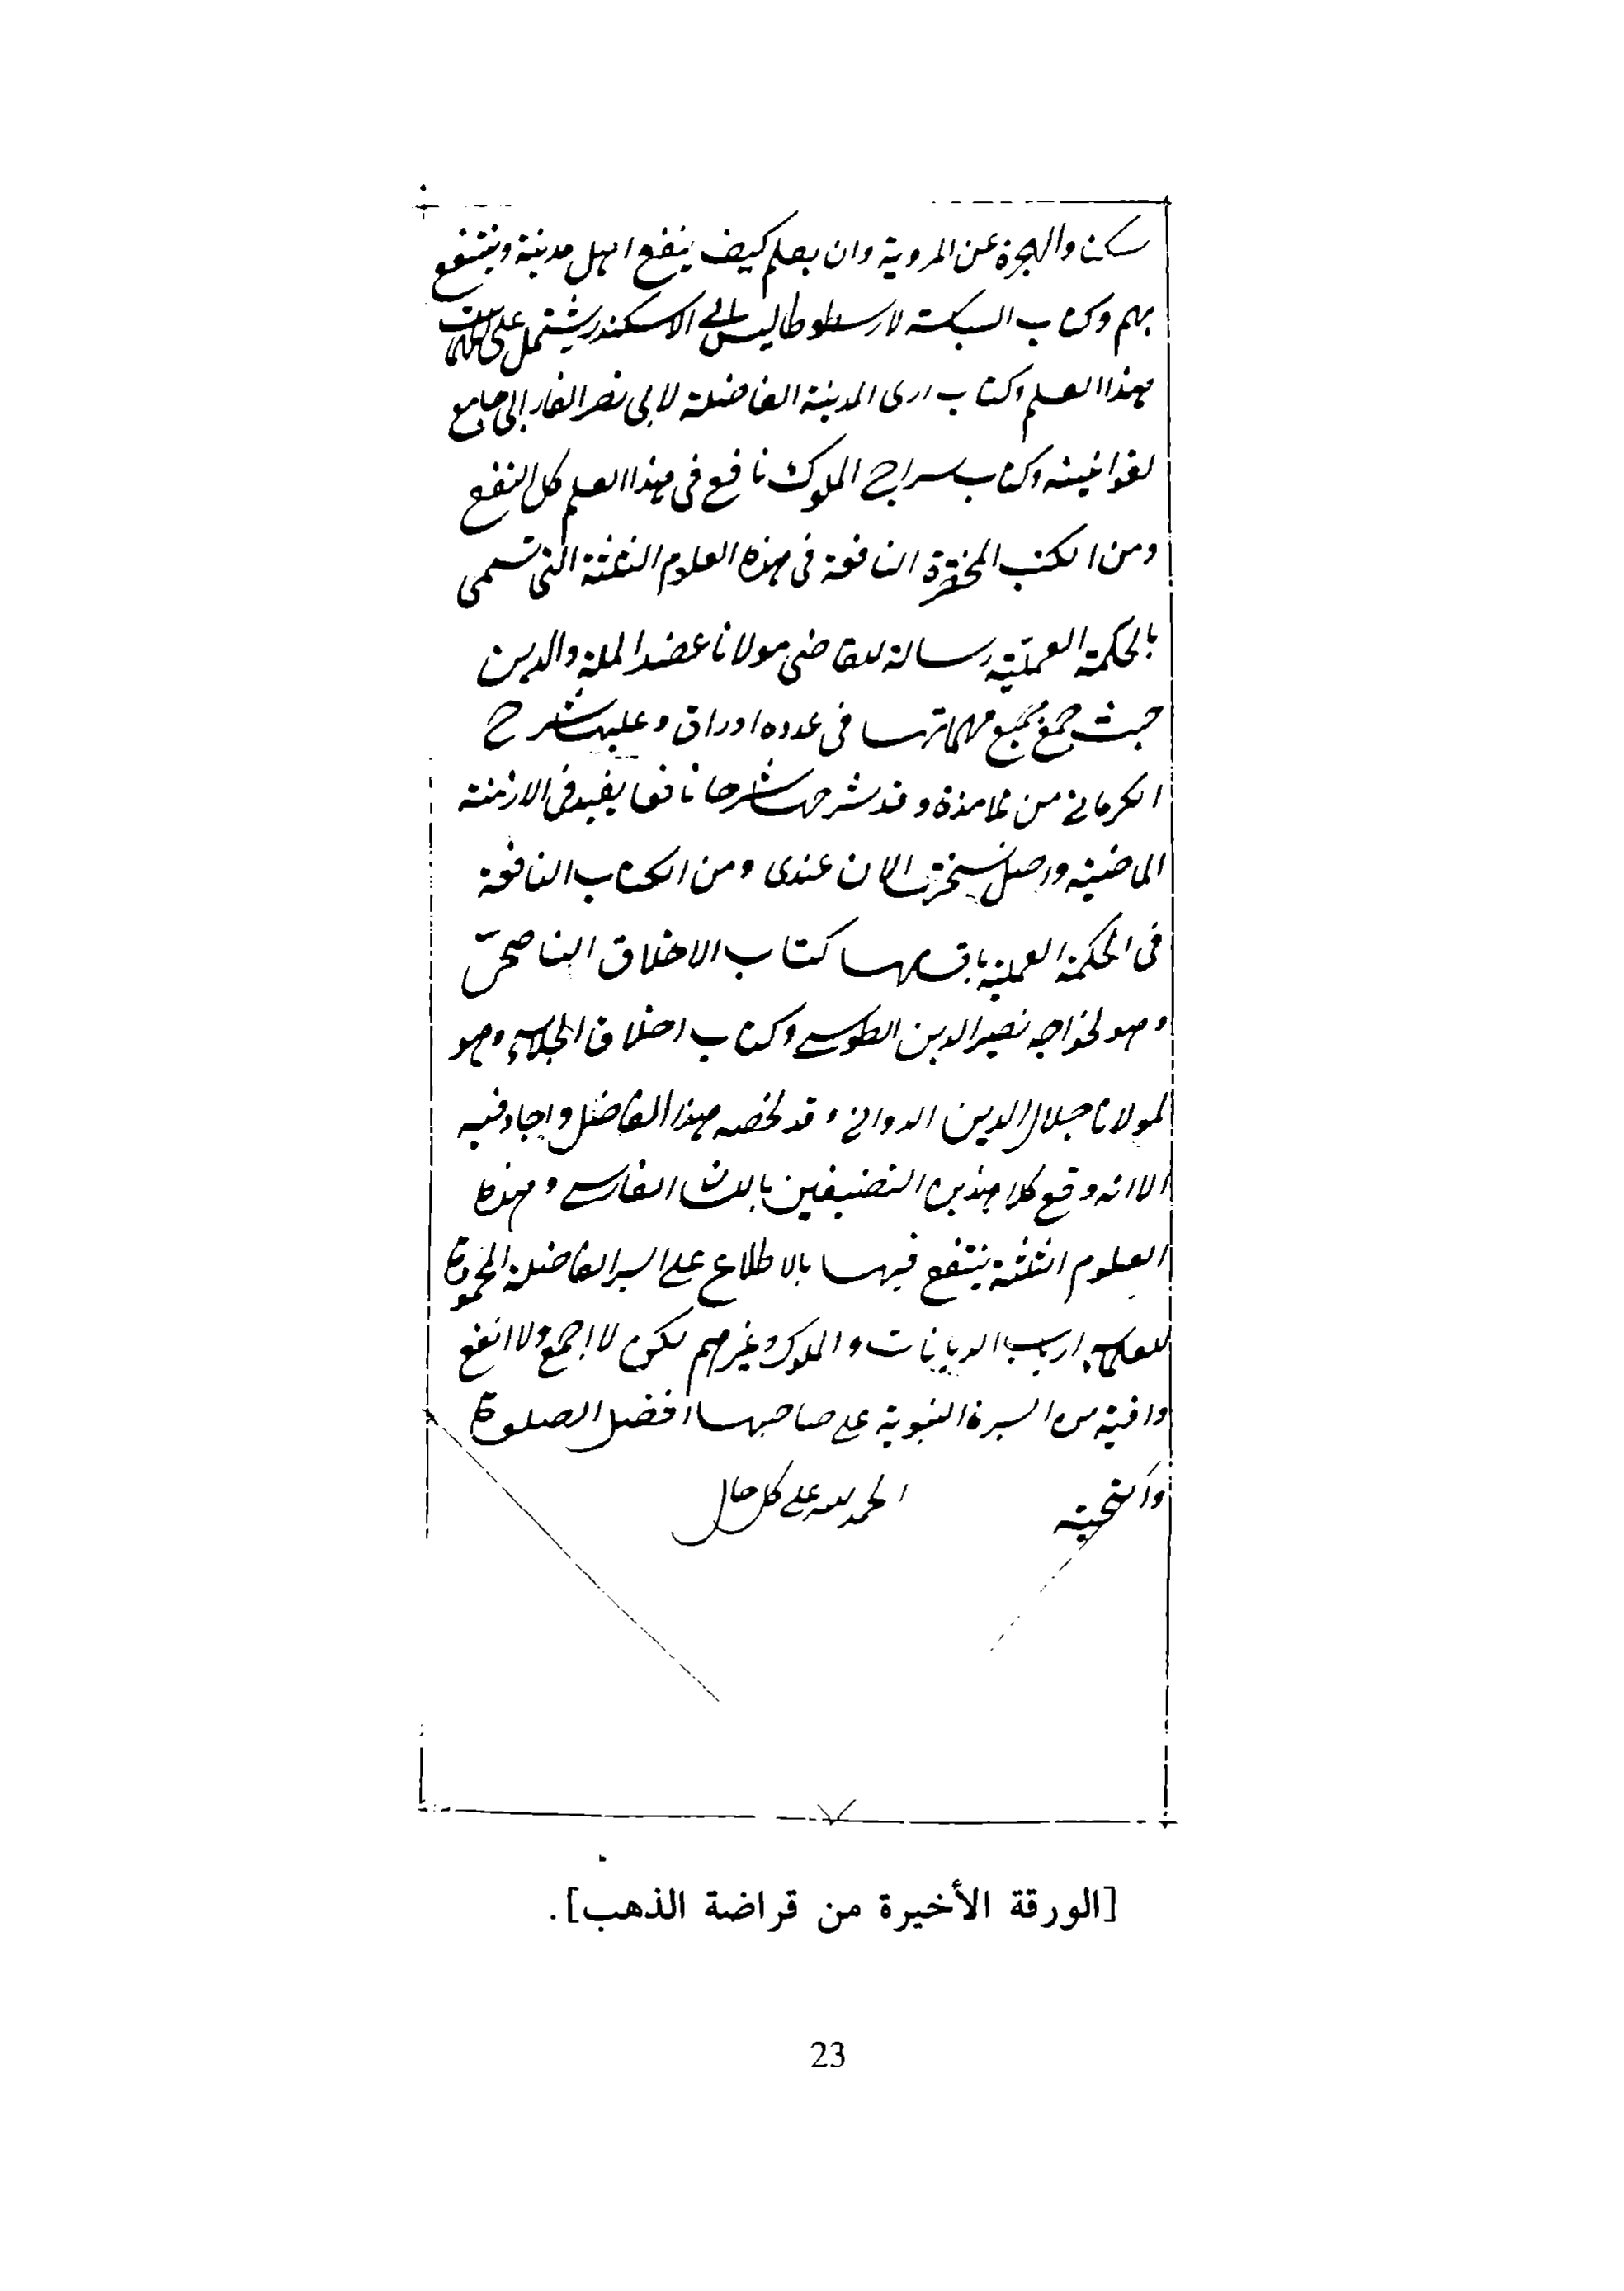 سكنا والهجرة عن المروية وان يعلم كيف ينفع اهل مدينة وينتفع
بهم وكتاب السياسة لارسطوطاليس الى الاسكندر يشتمل على مهمات
هذا العلم وكتاب ارى المدينة الفاضلة لابى نصر الفارابى جامع
لقوانينه وكتاب سراج الملوك نافع فى هذا العلم كل النفع
ومن الكتب المختصرة النافعة فى هذه العلوم الثلثة التى تسمى
بالحكمة العملية رسالة للقاضى مولانا عضد الملة والدين
حيث جمع جميع مهماتها فى عدده اوراق وعليها شرح
الكرمانى من تلامذة وقد شرحها شرحا نافعا يفيد فى الازمنة
الماضية واصل نسختها الان عندى ومن الكتاب النافعة
فى الحكمة العملية باقسامها كتاب الاخلاق الناصرى
وهو لخواجه نصير الدين الطوسى وكتاب اخلاق الجلالى وهو
لمولانا جلال الدين الدوانى وقد لخصه هذا الفاضل واجاد فيه
الا انه وقع كلا هذين التصنيفين باللسان الفارسى وهذه
العلوم الثلثة ينتفع فيها بالاطلاع على السير الفاضلة المحمودة
للعلماء ارباب الديانات والملوك وغيرهم لكن لا اجمع ولا انفع
وافية من السيرة النبوية على صاحبها افضل الصلوة
والتحية الحمد لله على كل حال
[الورقة الأخيرة من قراضة الذهب].
23